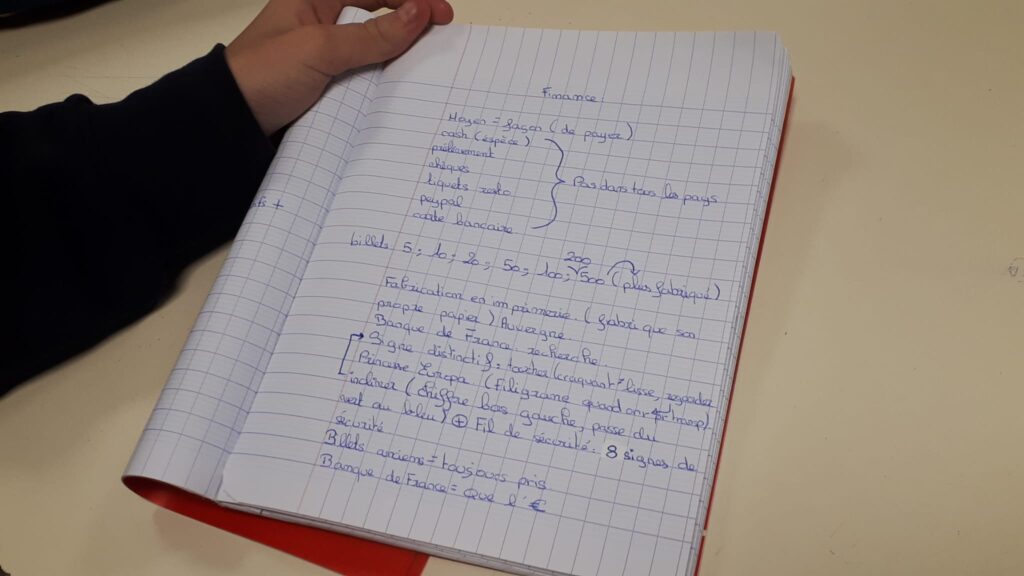 Finance
Moyen = façon (de payer)
cash (espèce)
prélèvement
chèques
tiquets resto
paypal
carte bancaire
Pas dans tous les pays
billets 5 ; 10 ; 20 ; 50 ; 100 ; 200 500 (plus fabriqué)
Fabrication en imprimerie (fabrique son
propre papier) Auvergne
Banque de France recherche
Signe distinctif : toucher (craquant ≠ lisse, regarder
Princesse Europa (filigrane quand on
incliner (chiffre bas gauche, passe du
vert au bleu) + Fil de sécurité. 8 signes de
sécurité
Billets anciens = toujours pris
Banque de France = Que l' €